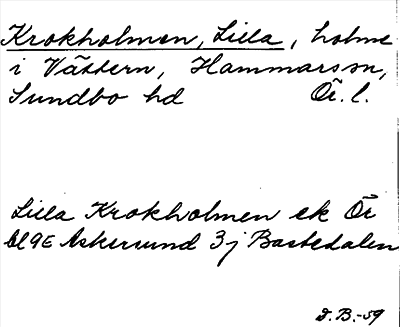 Krokholmen, Lilla, holme
i Vättern, Hammars sn,
Sundbo hd Ör. l.
Lilla Krokholmen ek Ör
bl 9E Askersund 3j Bastedalen
D.B.-59